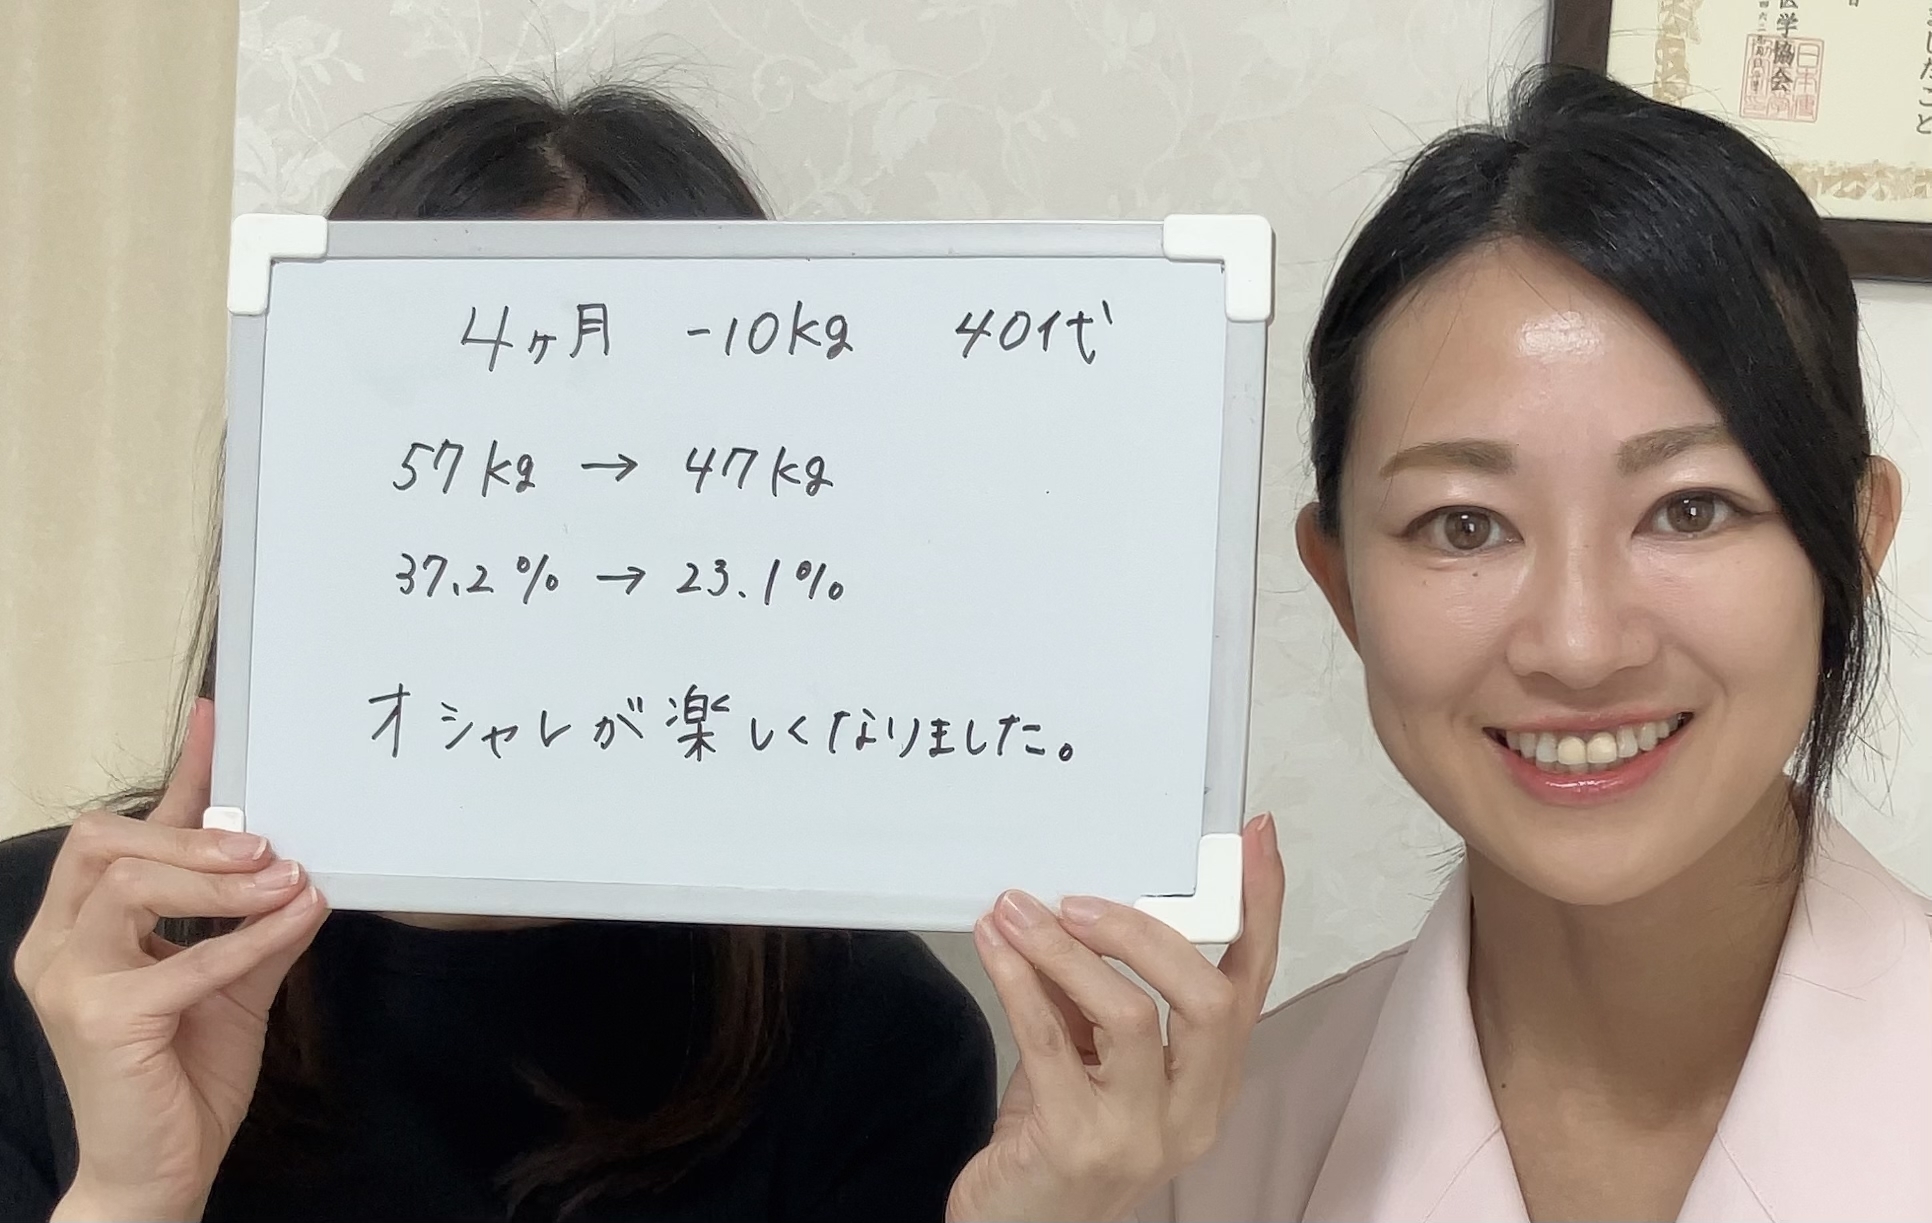 4ヶ月 -10kg 40代
57kg → 47kg
37.2% → 23.1%
オシャレが楽しくなりました。
医学協会
ましたこと